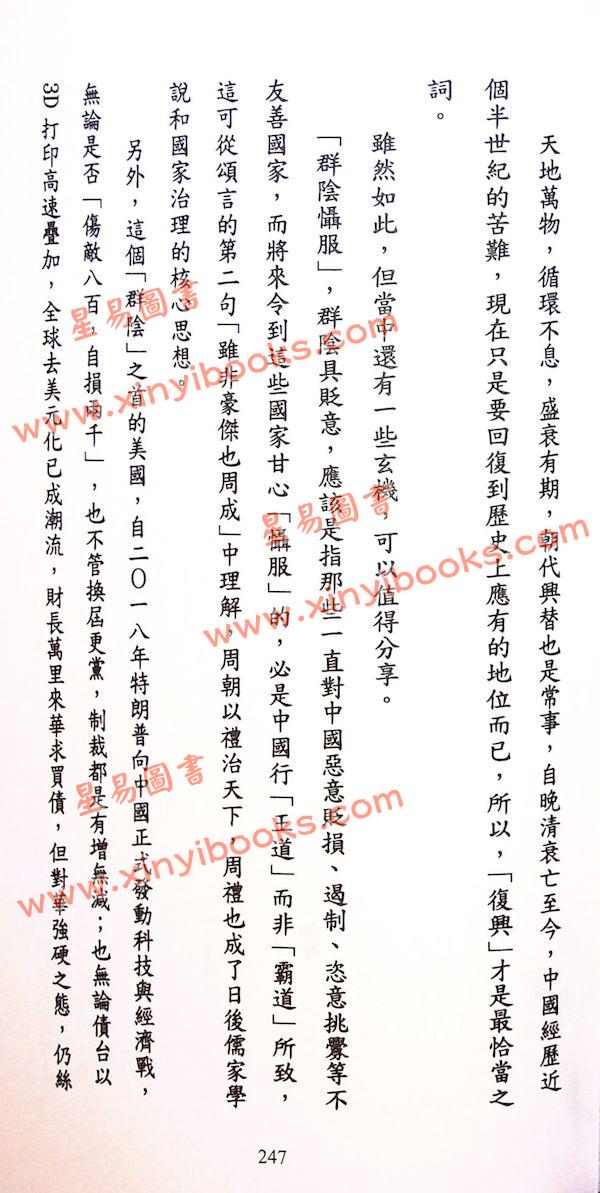 天地萬物，循環不息，盛衰有期，朝代興替也是常事，自晚清衰亡至今，中國經歷近
個半世紀的苦難，現在只是要回復到歷史上應有的地位而已，所以，「復興」才是最恰當之
詞。
雖然如此，但當中還有一些玄機，可以值得分享。
「群陰懾服」，群陰具貶意，應該是指那些一直對中國惡意貶損、遏制、恣意挑釁等不
友善國家，而將來令到這些國家甘心「懾服」的，必是中國行「王道」而非「霸道」所致，
這可從頌言的第二句「雖非豪傑也周成」中理解，周朝以禮治天下，周禮也成了日後儒家學
說和國家治理的核心思想。
另外，這個「群陰」之首的美國，自二〇一八年特朗普向中國正式發動科技與經濟戰，
無論是否「傷敵八百，自損兩千」，也不管換屆更黨，制裁都是有增無減；也無論債台以
3D 打印高速疊加，全球去美元化已成潮流，財長萬里來華求買債，但對華強硬之態，仍絲
247
星易圖書
www.xinyibooks.com
星易圖書
www.xinyibooks.com
星易圖書
www.xinyibooks.com